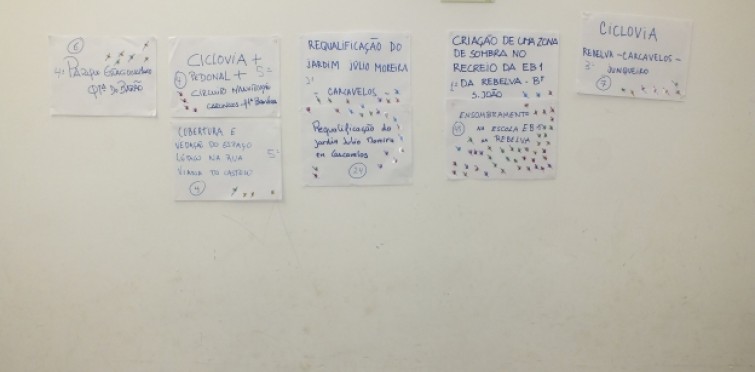 6
4º Parque
Qtª do Barão
CICLOVIA +
PEDONAL + 5º
CIRCUITO MANUTENÇÃO
CARCAVELOS -
COBERTURA E
VEDAÇÃO DO ESPAÇO
LÚDICO NA RUA
VIANA DO CASTELO
5º
4
REQUALIFICAÇÃO DO
JARDIM JÚLIO MOREIRA
- CARCAVELOS -
Requalificação do
jardim Julio Moreira
em Carcavelos
24
CRIAÇÃO DE UMA ZONA
DE SOMBRA NO
RECREIO DA EB1
DA REBELVA - Bº
S. JOÃO
ENSOMBRAMENTO
na ESCOLA EB1
REBELVA
CICLOVIA
REBELVA - CARCAVELOS -
JUNQUEIRO
7